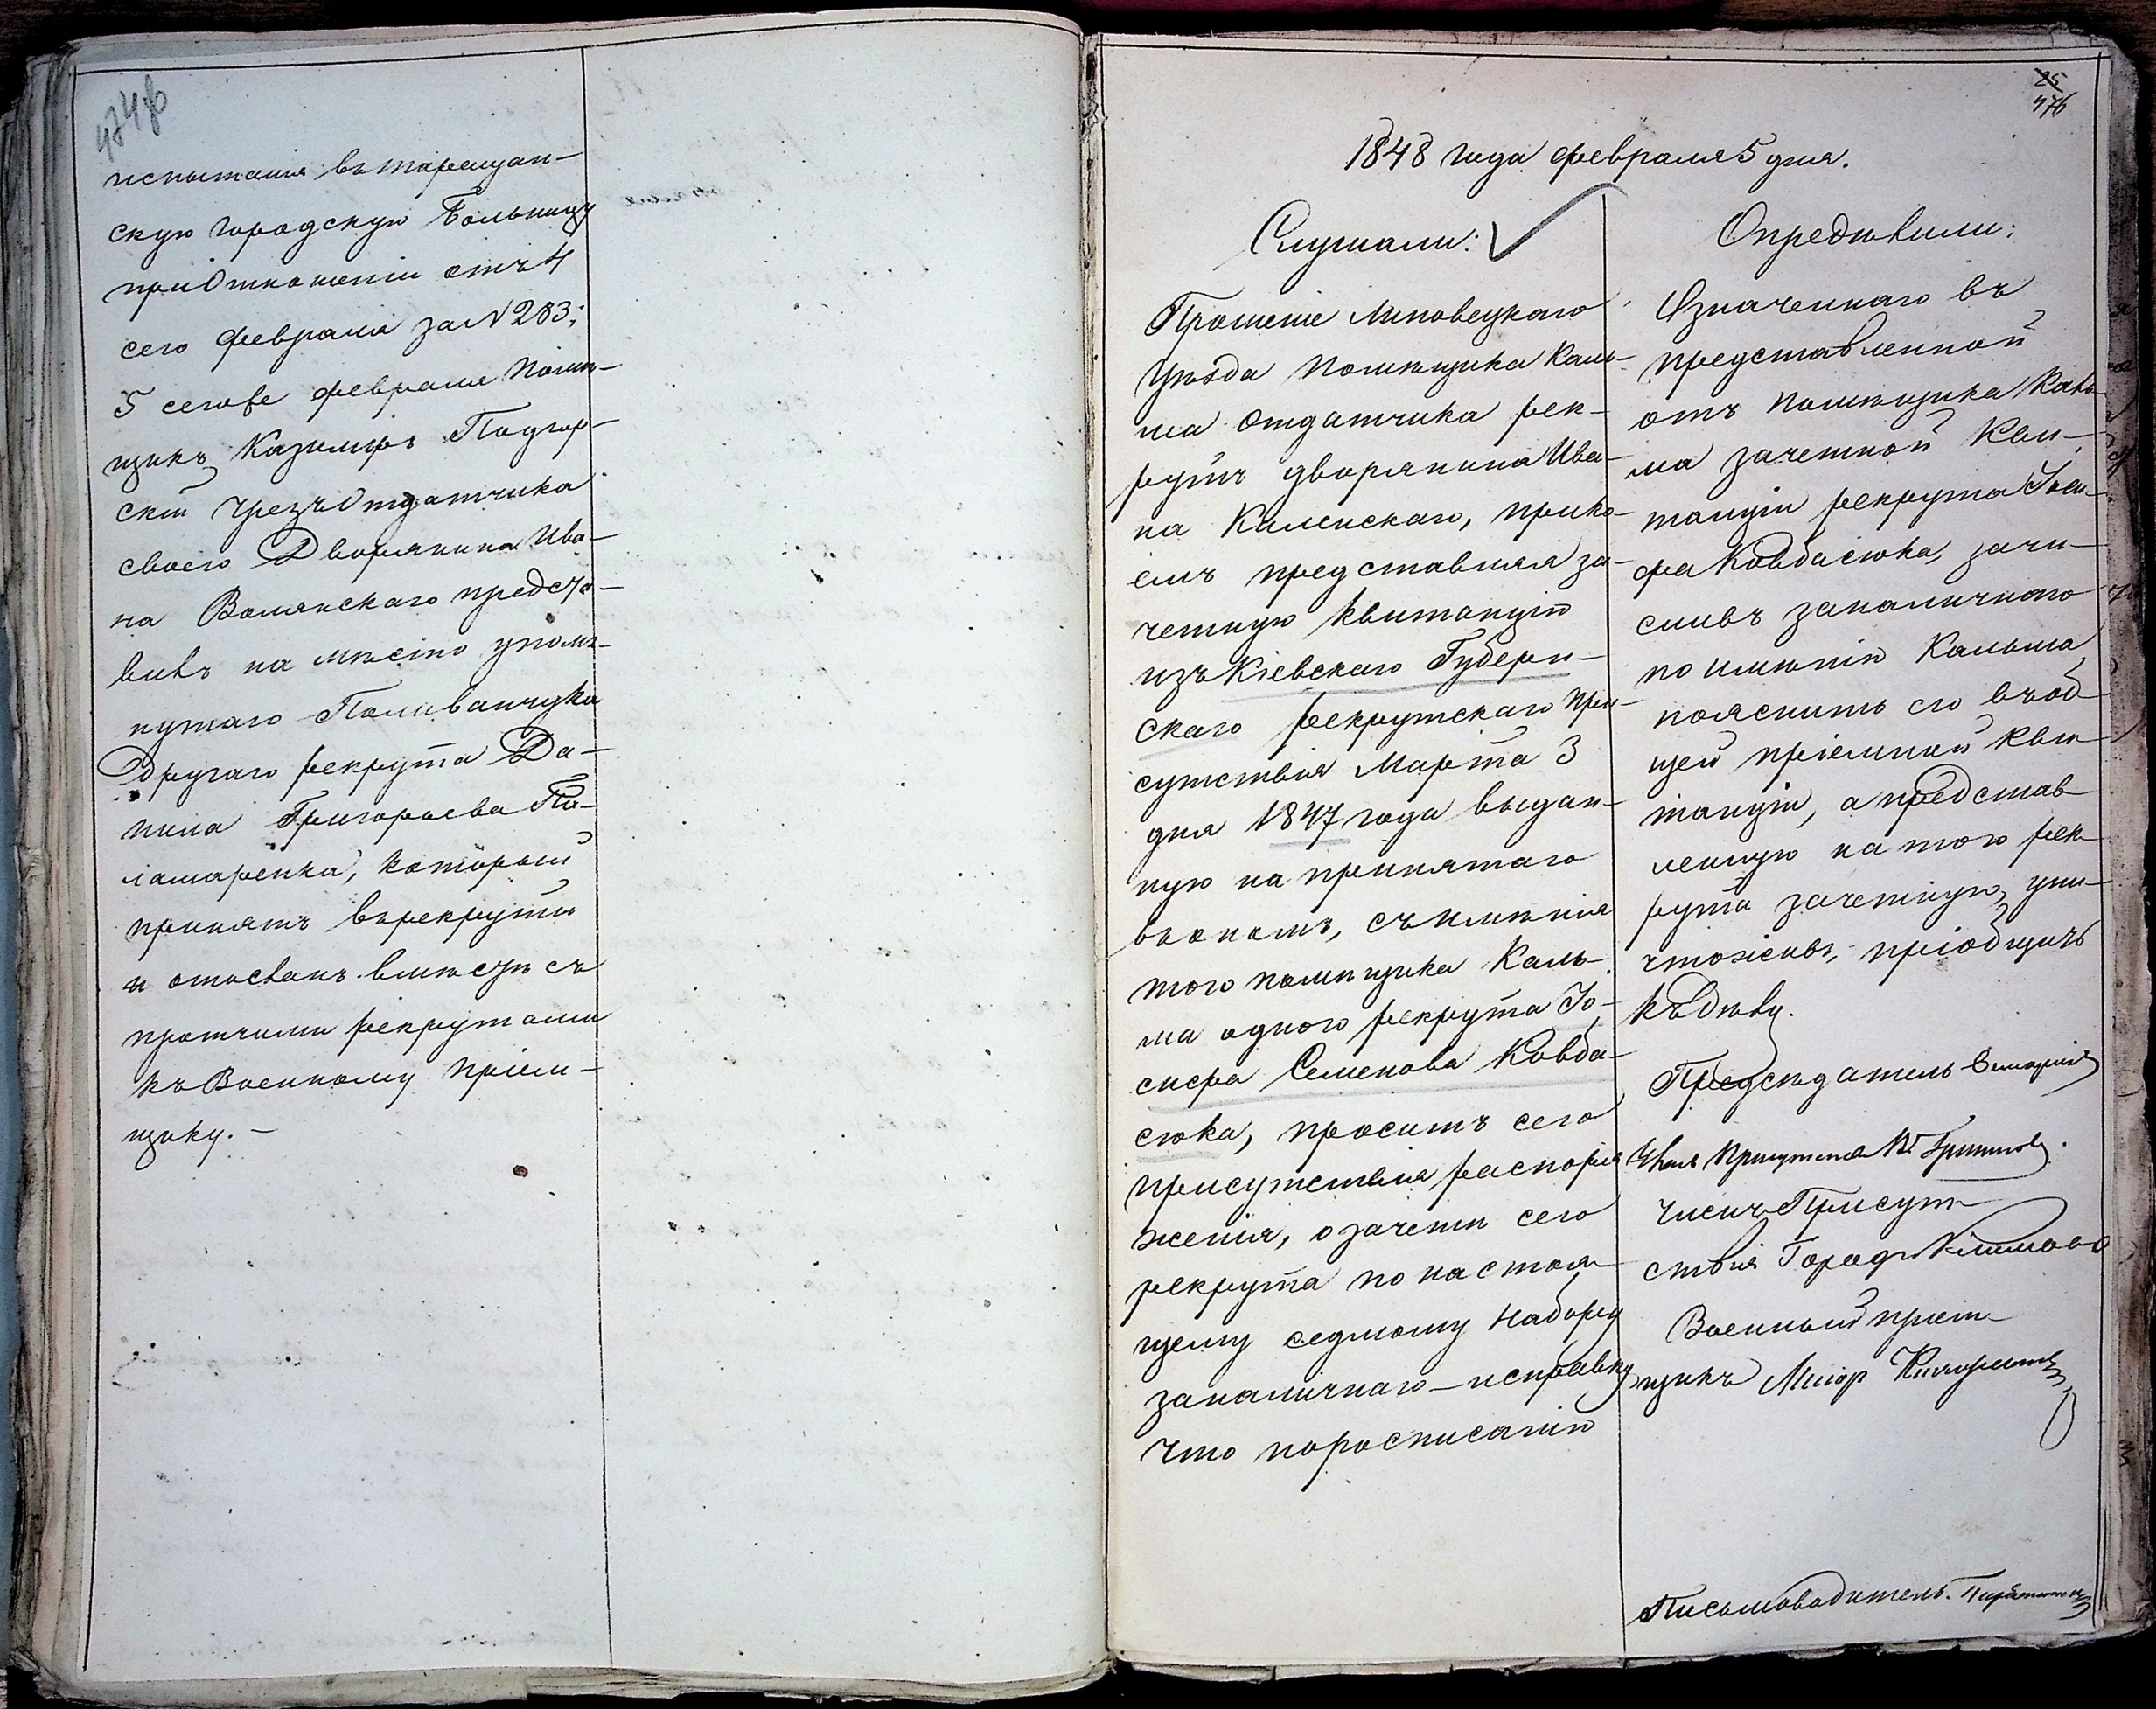 474об
испытанія въ таращан-
скую городскую больницу
при Отношеніи отъ 4
сего февраля за N 283;
5 сегоже февраля помѣ-
щикъ Казимиръ Подгор-
скій чрезъ Отдатчика
своего Дворянина Ива-
на Волянскаго предста-
вивъ на мѣсто упомя-
нутаго Поливанчука
другаго рекрута Да-
нила Григорьева По-
ламаренка, который
принятъ въ рекруты
и отосланъ вмѣстѣ съ
протчими рекрутами
къ Военному пріем-
щику. -
25
476
1848 года февраля 5 дня.
Слушали:
Прошеніе Липовецкаго
уѣзда помѣщика Каль-
ма отдатчика рек-
рутъ дворянина Ива-
на Каменскаго, при ко-
емъ представляя за-
четную квитанцію
изъ Кіевскаго Губерн-
скаго рекрутскаго При-
сутствія Марта 3
дня 1847 года выдан-
ную на принятаго
въ ономъ, съ имѣнія
того помѣщика Каль-
ма одного рекрута Іо-
сифа Семенова Ковба-
сюка, проситъ сего
присутствія распоря
женія, о зачетѣ сего
рекрута по настоя-
щему седмому набору
за наличнаго - исправку
что по росписанію
Опредѣлили:
Означеннаго въ
представленной
отъ помѣщика Каль-
ма зачетной Кви-
танціи рекрута Іоси-
фа Ковбасюка, зачи-
сливъ за наличного
по имѣнію Кальма
пояснить его въ об-
щей пріемной кви-
танціи, а представ
ленную на того рек-
рута зачетную, уни-
чтоживъ, пріобщить
къ дѣлу.
Предсѣдатель
Членъ Присутствія
Членъ Присут-
ствія Город.
Военный пріем-
щикъ Маіор
Письмоводитель